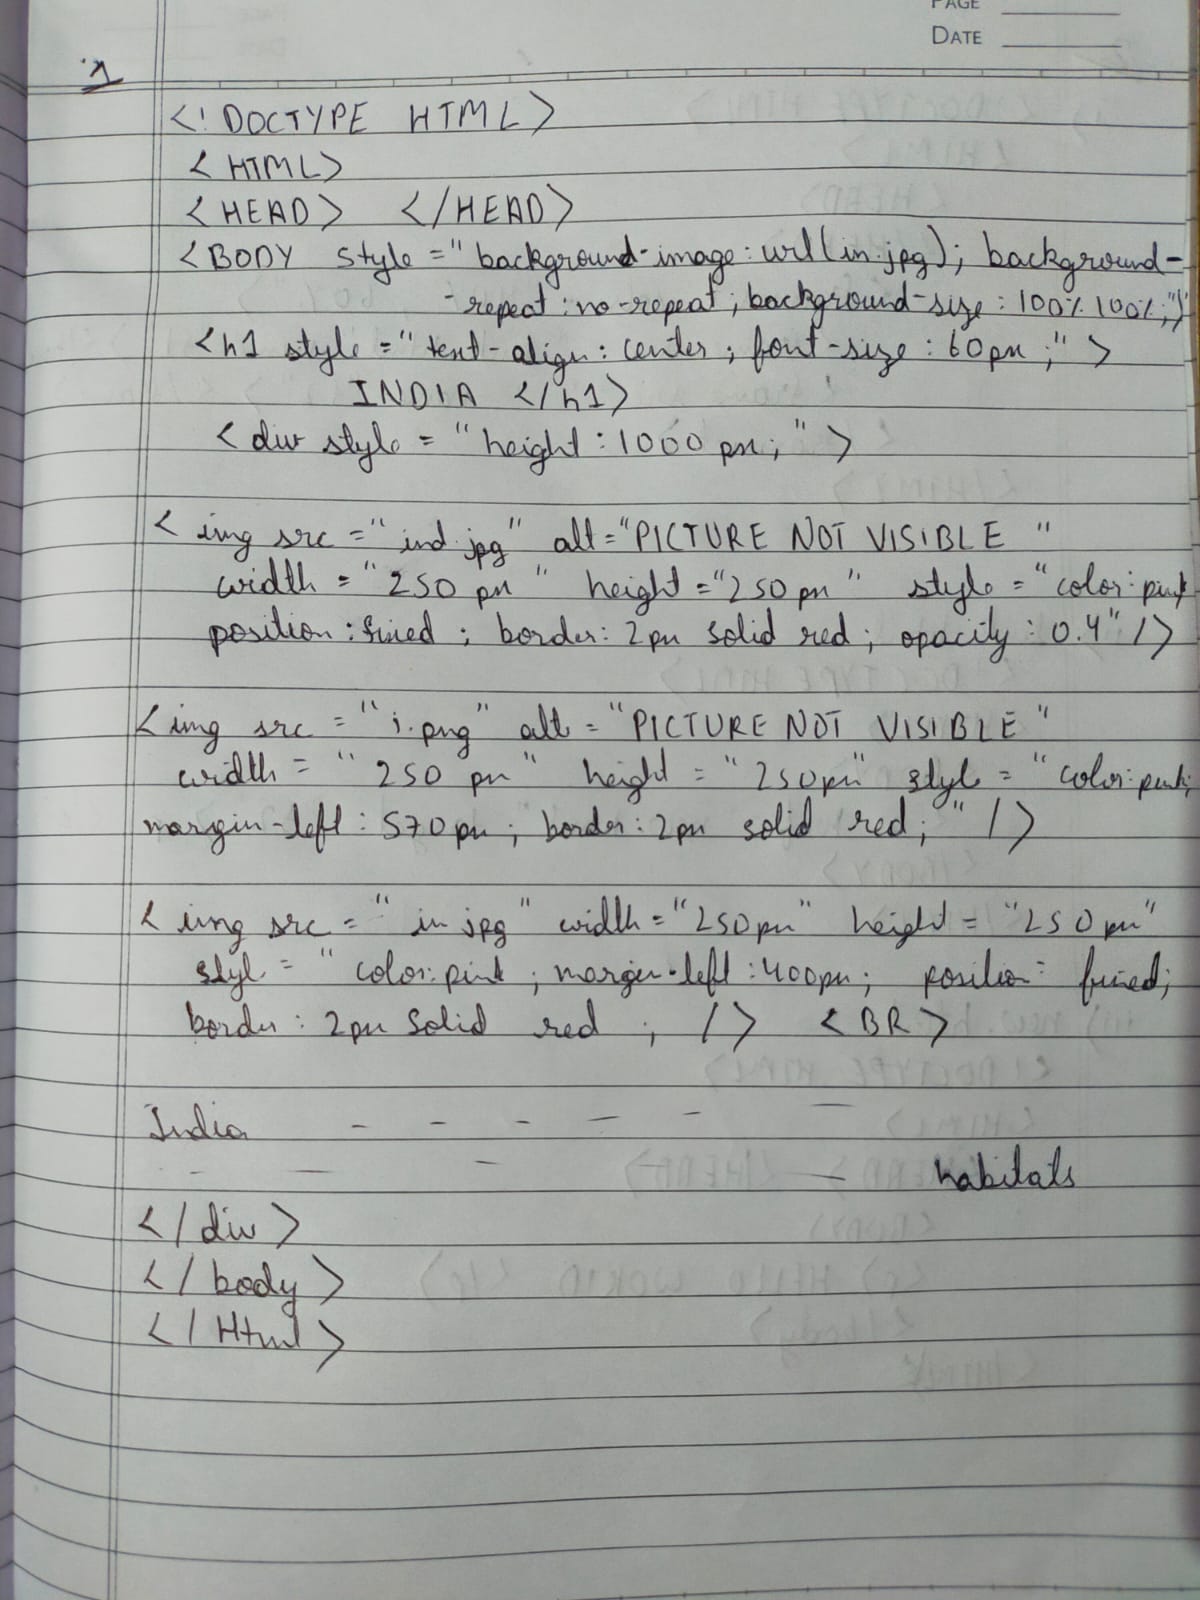 PAGE
DATE
1
<! DOCTYPE HTML>
<HTML>
<HEAD> </HEAD>
<BODY style = "background-image: url(in.jpg); background-
-repeat: no-repeat; background-size: 100% 100%;">
<h1 style = "text-align: center; font-size: 60px;" >
INDIA </h1>
<div style = "height: 1000 px; ">
< img src = "ind.jpg" alt = "PICTURE NOT VISIBLE "
width = "250 px " height = "250 px " style = "color: pink
position: fixed ; border: 2px solid red; opacity: 0.4" />
< img src = "i.png" alt = "PICTURE NOT VISIBLE "
width = " 250 px" height = "250px" style = "color: pink;
margin-left: 570px; border: 2px solid red; " />
< img src = " in jpg" width = "250px" height = "250px"
styl = "color: pink ; margin-left: 400px; position: fixed;
border: 2px Solid red ; /> <BR>
India - - - - - -
- - - - habitats
</div>
</body>
</Html>